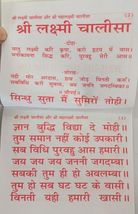 श्री लक्ष्मी चालीसा और श्री महालक्ष्मी चालीसा
श्री लक्ष्मी चालीसा
॥ दोहा ॥
मातु लक्ष्मी करि कृपा, करो हृदय में वास।
मनोकामना सिद्ध करि, पुरवहु मेरी आस॥
॥ सोरठा ॥
यही मोर अरदास, हाथ जोड़ विनती करूं।
सिन्धु सुता मैं सुमिरौं तोही।
श्री लक्ष्मी चालीसा और श्री महालक्ष्मी चालीसा
ज्ञान बुद्धि विद्या दे मोही॥
तुम समान नहीं कोई उपकारी।
सब विधि पुरवहु आस हमारी॥
जय जय जय जननी जगदम्बा।
सबकी तुम ही हो अवलम्बा॥
तुम हो सब घट घट के वासी।
विनती यही हमारी खासी॥